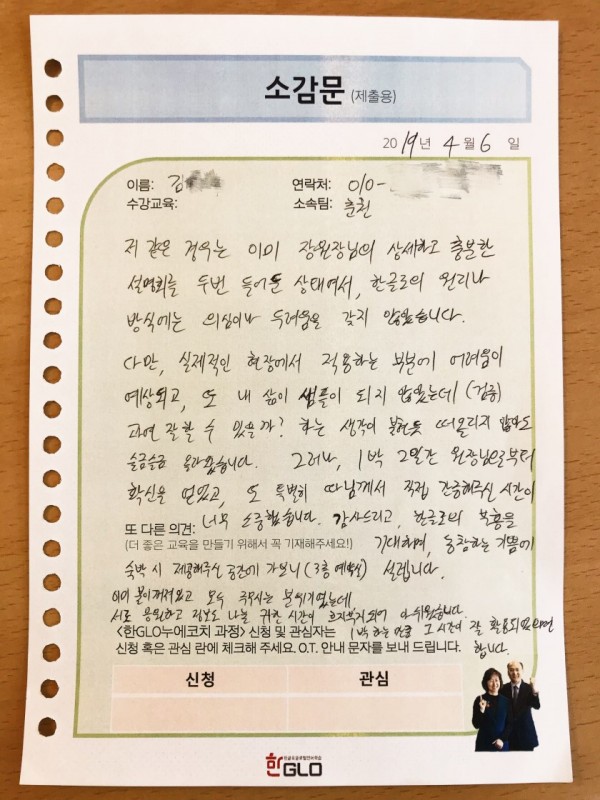 소감문 (제출용)
2019년 4월 6일
이름: 김
연락처: 010-
수강교육:
소속팀: 춘권
저 같은 경우는 이미 장원장님의 상세하고 충분한
설명회를 두번 들어둔 상태여서, 한글로의 원리나
방식에는 의심이나 두려움을 갖지 않았습니다.
다만, 실제적인 현장에서 적용하는 부분에 어려움이
예상되고, 또 내 삶이 샘플이 되지 않았는데 (검증)
과연 잘할 수 있을까? 하는 생각이 불현듯 떠올리지 않아도
슬금슬금 올라왔습니다. 그러나, 1박 2일간 원장님으로부터
확신을 얻었고, 또 특별히 따님께서 직접 간증해주신 시간이
너무 소중했습니다. 감사드리고, 한글로의 부흥을
기대하며, 동참하는 기쁨에
설렙니다.
또 다른 의견:
(더 좋은 교육을 만들기 위해서 꼭 기재해주세요!)
숙박 시 제공해주신 공간에 가보니 (3층 예배실)
이미 불이 꺼져있고 모두 주무시는 분위기였는데
서로 응원하고 정보도 나눌 귀한 시간이 흐지부지되어 아쉬웠습니다.
1박 하는 만큼 그 시간이 잘 활용되었으면
합니다.
<한GLO누에코치 과정> 신청 및 관심자는
신청 혹은 관심 란에 체크해 주세요. O.T. 안내 문자를 보내 드립니다.
신청 관심
한GLO